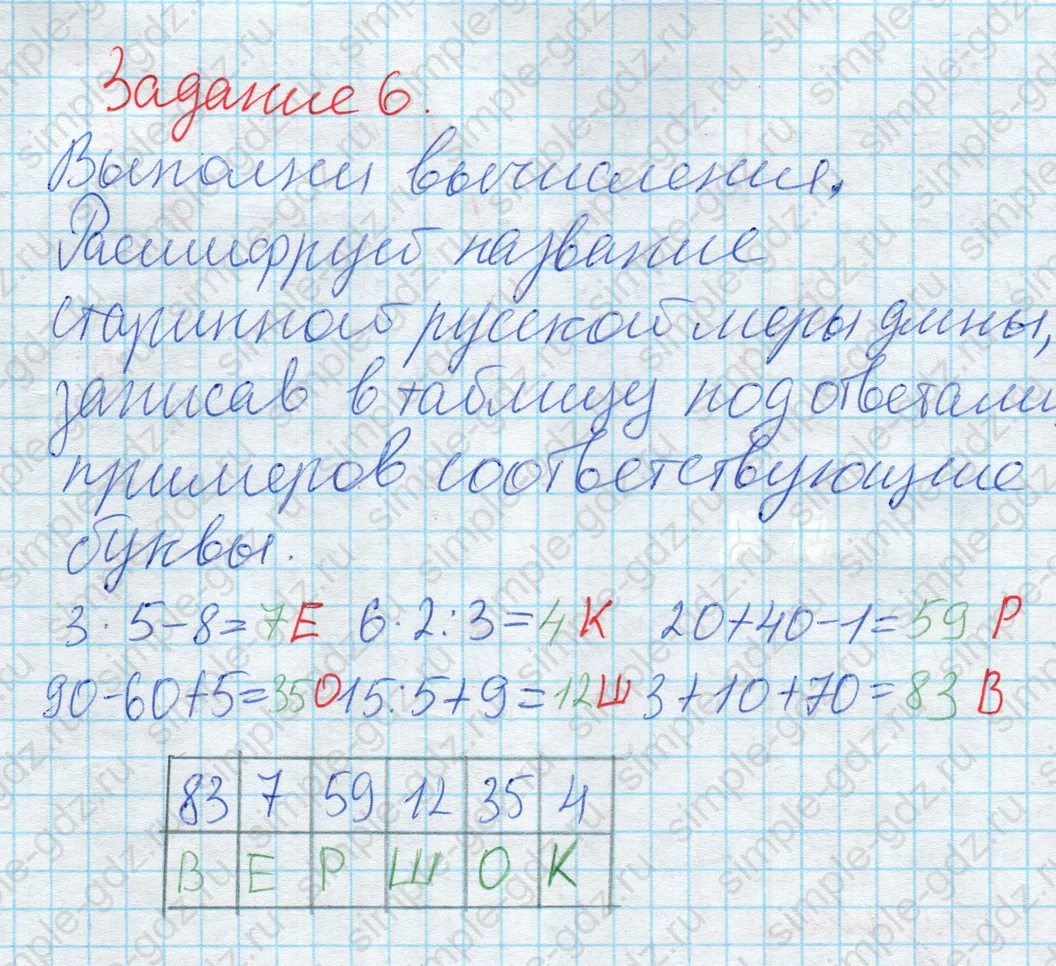 Задание 6.
Выполни вычисления.
Расшифруй название
старинной русской меры длины,
записав в таблицу под ответами
примеров соответствующие
буквы.
3 · 5 - 8 = 7 Е 6 · 2 : 3 = 4 К 20 + 40 - 1 = 59 Р
90 - 60 + 5 = 35 О 15 : 5 + 9 = 12 Ш 3 + 10 + 70 = 83 В
83 7 59 12 35 4
В Е Р Ш О К
simple-gdz.ru